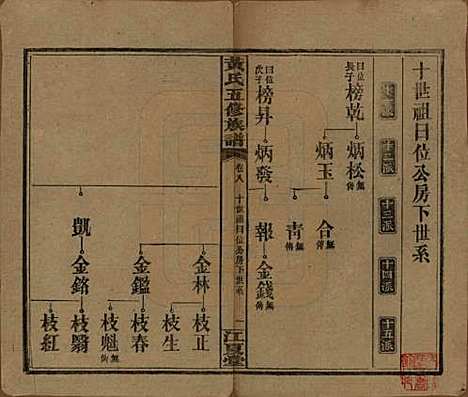 十世祖曰位公房下世系
十二派
十三派
十四派
十五派
曰位長子
榜乾
炳松 無傳
炳玉
合 無傳
青 無傳
曰位次子
榜昇
炳發
報
金錢 無傳
黃氏五修族譜
卷八
十世祖曰位公房下世系
一
江夏堂
金林
枝正
枝生
金鑑
枝春
枝魁 無傳
凱
金銘
枝翳 無傳
枝紅